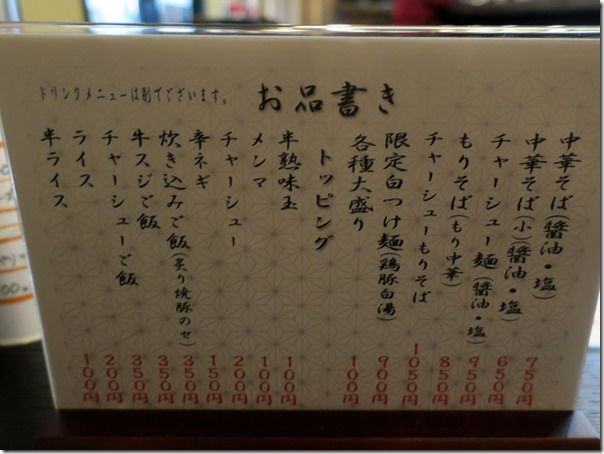 お品書き
ドリンクメニューは別でございます。
中華そば(醤油・塩) 750円
中華そば(小)(醤油・塩) 650円
チャーシュー麺(醤油・塩) 950円
もりそば(もり中華) 850円
チャーシューもりそば 1050円
限定白つけ麺(鶏豚白湯) 900円
各種大盛り 100円
トッピング
半熟味玉 100円
メンマ 100円
チャーシュー 200円
辛ネギ 150円
炊き込みご飯(炙り焼豚のせ) 350円
牛スジご飯 350円
チャーシューご飯 350円
ライス 200円
半ライス 100円